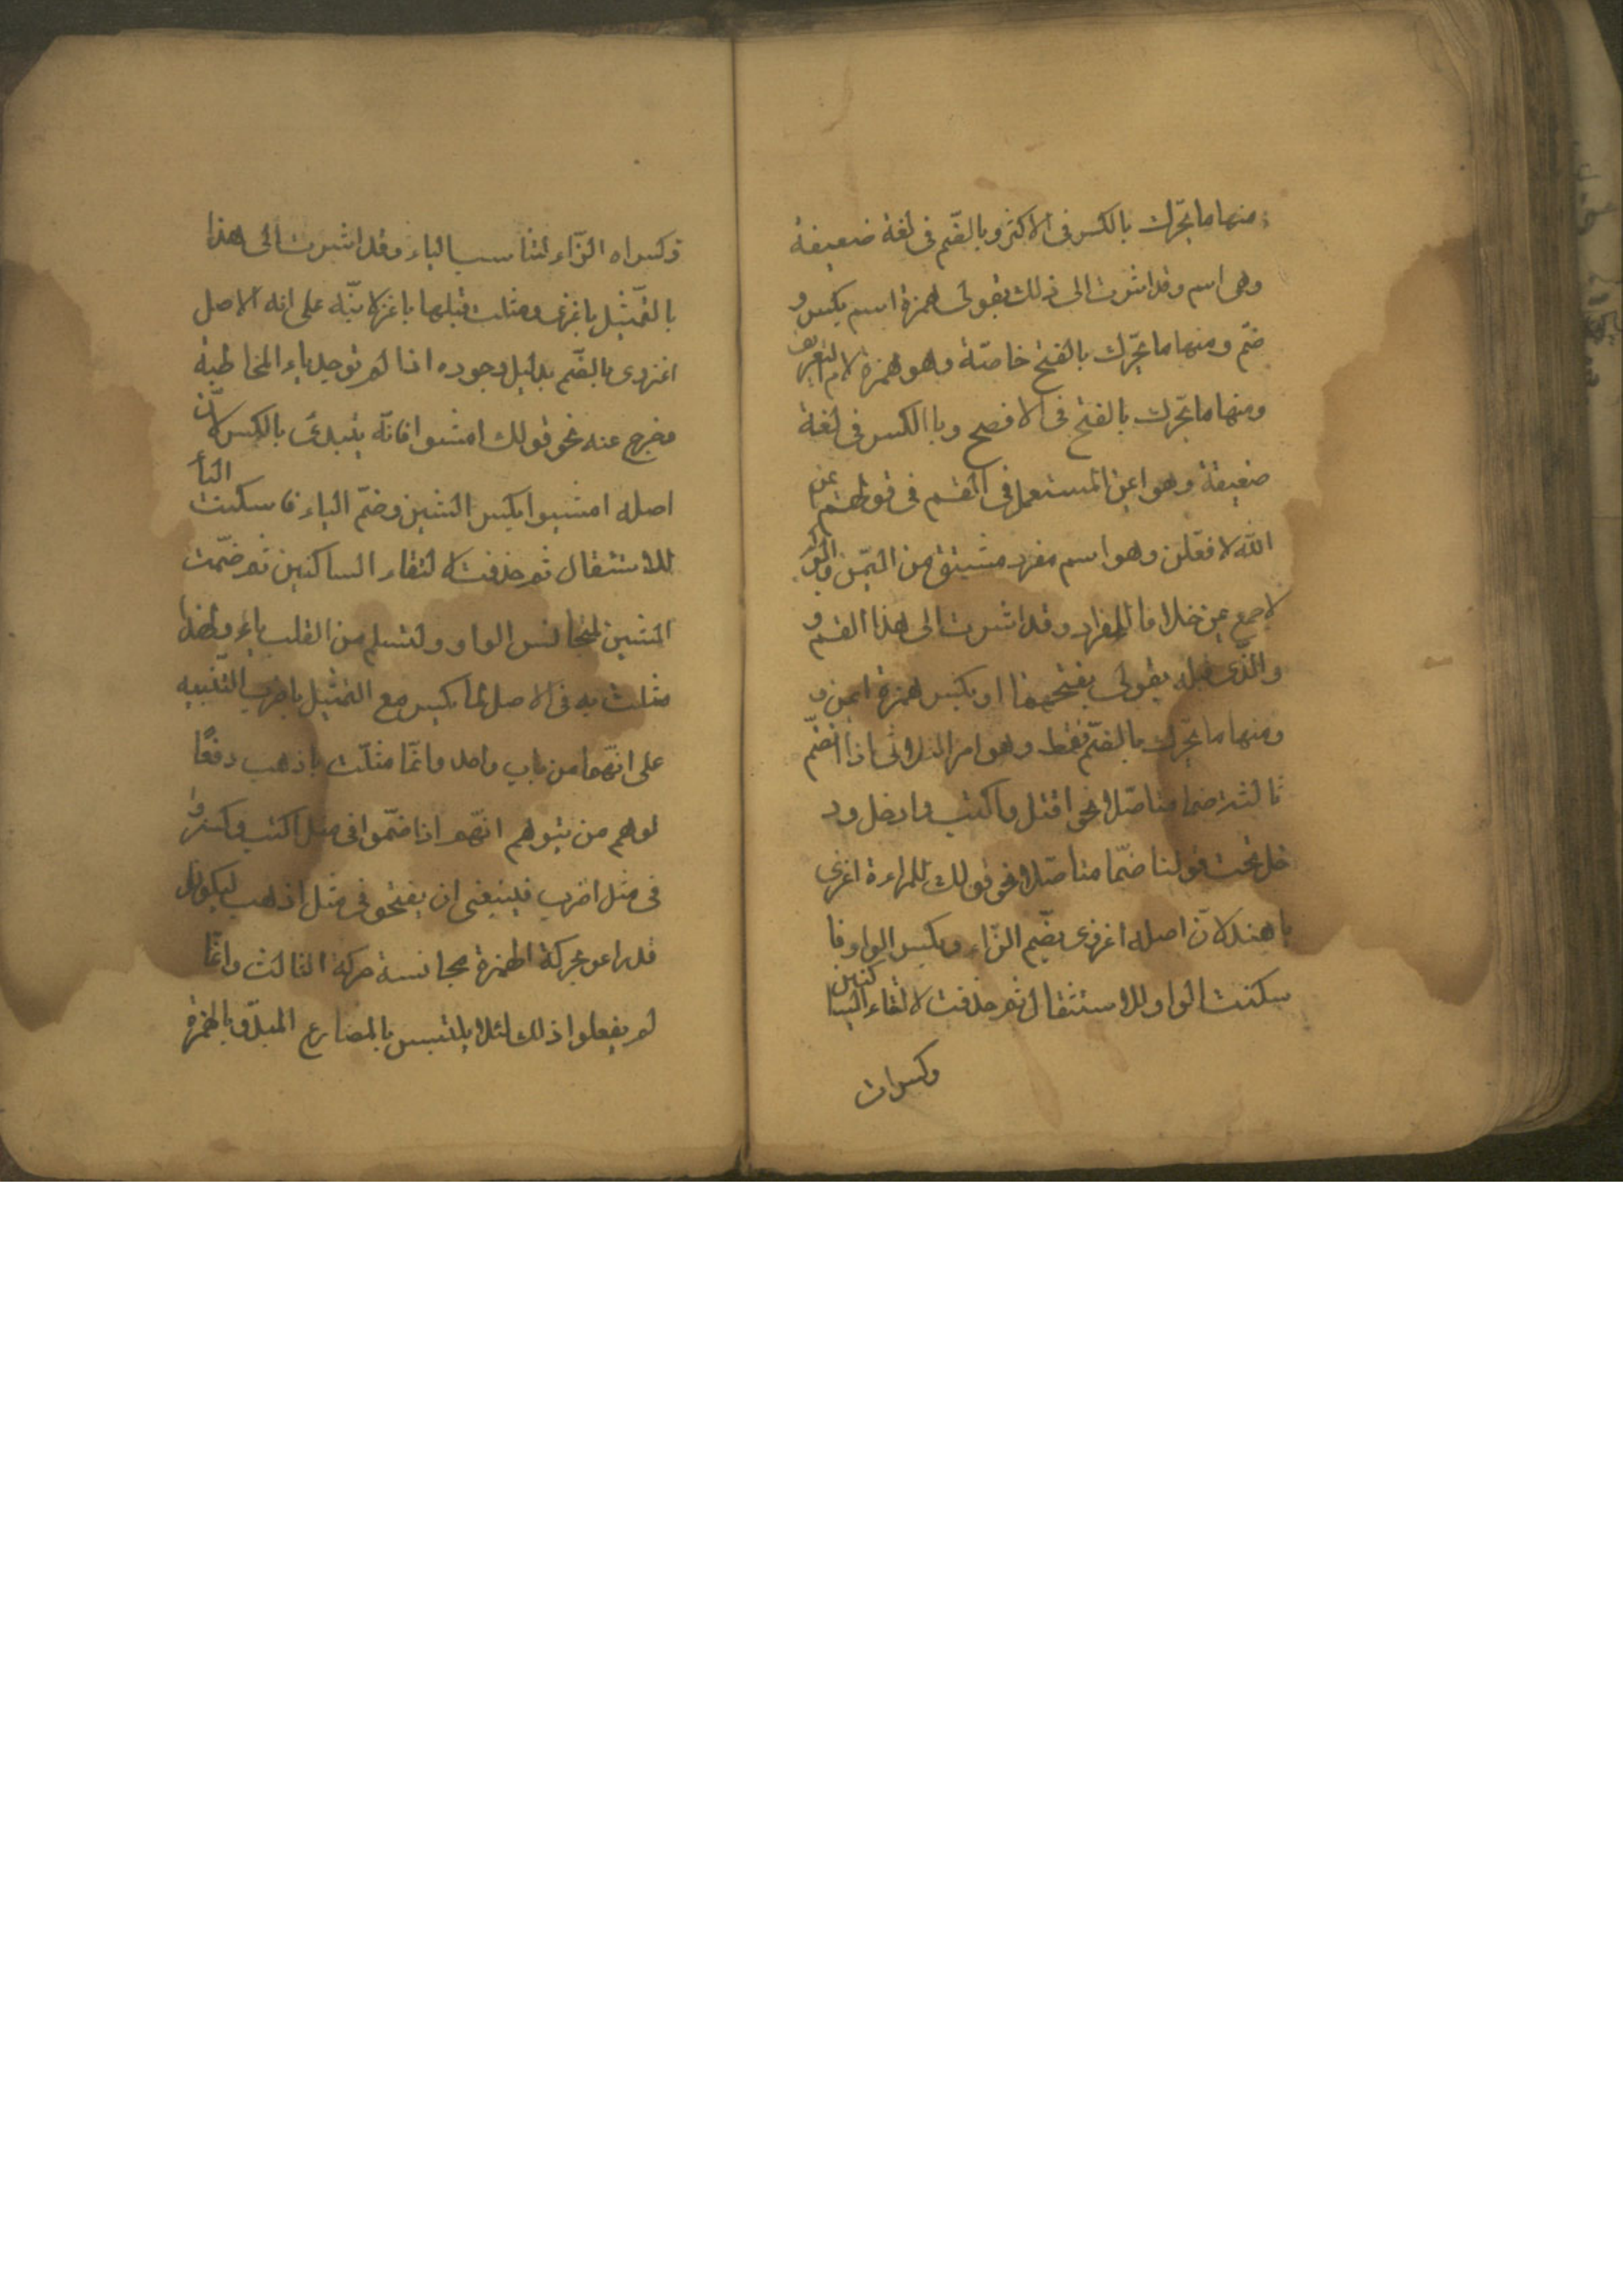 ومنها ما يحرّك بالكسر فى الاكثر وبالضّم فى لغة ضعيفة
وهى اسم وقد اشرت الى ذلك بقولى همزة اسم بكسر و
ضّم ومنها ما يحرّك بالفتح خاصّة وهو همزة لام التعريف
ومنها ما يحرّك بالفتح فى الافصح وباالكسر فى لغة
ضعيفة وهو ايمن المستعمل فى القسم فى قولهم
الله لافعلن وهو اسم مفرد مشتق من اليمن
لا جمع يمين خلافا للفراء وقد اشرت الى هذا القسم و
والّذى قبله بقولى بفتحهما او بكسر همزة ايمن
ومنها ما يحرّك بالضّم فقط وهو امر الثلاثى اذا انضّم
ثالثه ضما متاصّلا نحو اقتل واكتب وادخل ود
خل تحت قولنا ضمّا متاصّلا نحو قولك للمراءة اغزى
ياهند لانّ اصله اغزوى بضّم الزّاء وبكسر الواو فا
سكنت الواو للاستثقال ثم حذفت لالتقاء الساكنين
وكسرات
وكسراه الزّاء لتناسب الياء وقد اشرت الى هذا
بالتّمثيل باغزى ومثلت قبلها باغز لانبّه على انه الاصل
اغزوى بالضّم بدليل وجوده اذا لم توجد ياء المخاطبة
مخرج عنه نحو قولك امشوا فانّه يبتدئ بالكسر لانّ
اصله امشيوا بكسر الشين وضّم الياء فاسكنت الياء
للاستثقال ثم حذفت لالتقاء الساكنين ثم ضمّت
الشين لتجانس الواو ولتسلم من القلب ياء ولهذا
مثلت به فى الاصل لما يكسر مع التمثيل باضرب التّنبيه
على انهّما من باب واحد وانّما مثلّت باذهب دفعًا
لوهم من يتوهم انهّم اذا ضمّوا فى مثل اكتب وكسروا
فى مثل اضرب فينبغى ان يفتحو فى مثل اذهب ليكونوا
قد راعو بحركة الهمزة مجانسة حركة الثالث وانّما
لم يفعلوا ذلك لئلا يلتبس بالمضارع المبدّو بالهمزة